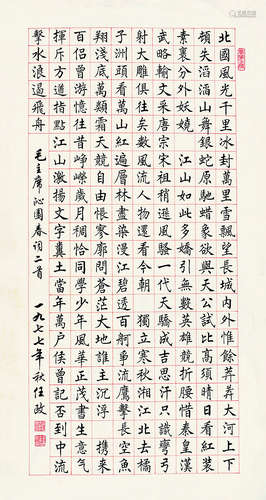 北國風光千里冰封萬里雪飄望長城內外惟餘莽莽大河上下
頓失滔滔山舞銀蛇原馳蠟象欲與天公試比高須晴日看紅裝
素裹分外妖嬈 江山如此多嬌引無數英雄競折腰惜秦皇漢
武略輸文采唐宗宋祖稍遜風騷一代天驕成吉思汗只識彎弓
射大雕俱往矣數風流人物還看今朝 獨立寒秋湘江北去橘
子洲頭看萬山紅遍層林盡染漫江碧透百舸爭流鷹擊長空魚
翔淺底萬類霜天競自由悵寥廓問蒼茫大地誰主沉浮 攜來
百侶曾游憶往昔崢嶸歲月稠恰同學少年風華正茂書生意氣
揮斥方遒指點江山激揚文字糞土當年萬戶侯曾記否到中流
擊水浪遏飛舟
毛主席沁園春詞二首 一九七七年秋任政